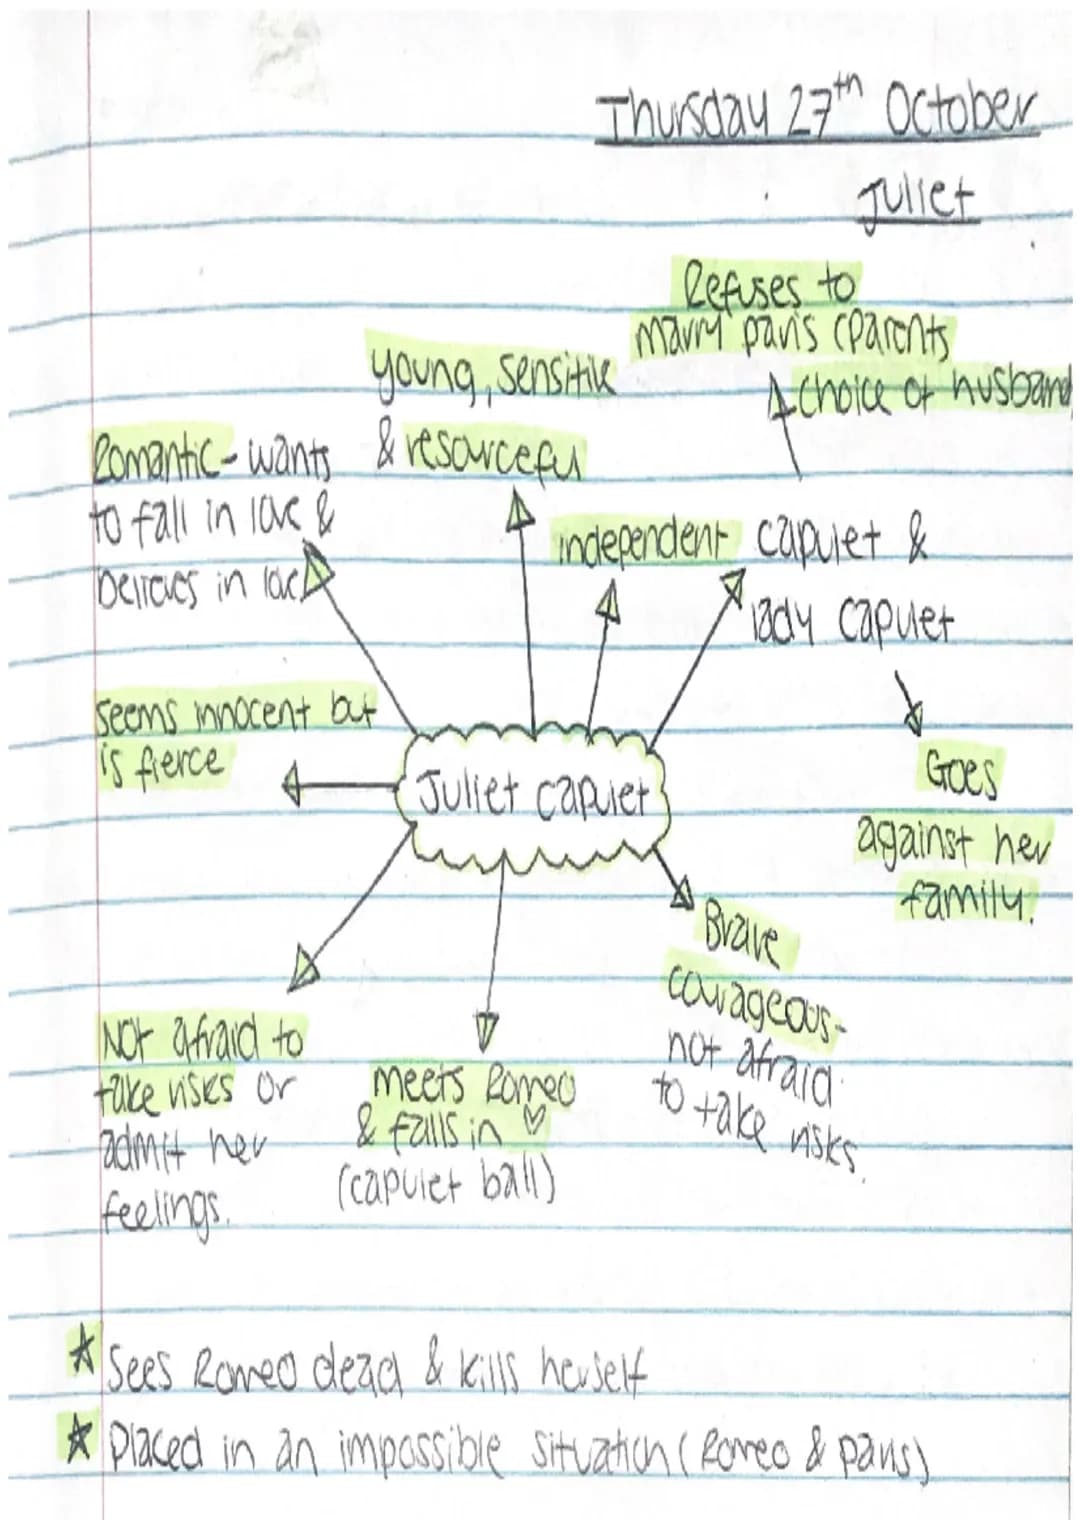 Thursday 27th October
Juliet
Refuses to
marry paris (Parents
choice of husband
young, sensitive
& resourceful
Romantic - wants
to fall in love &
believes in love
independent
capulet &
lady capulet
seems innocent but
is fierce
Juliet capulet
Goes
against her
family.
Brave
courageous-
not afraid
to take risks.
Not afraid to
take risks or
admit her
feelings.
meets Romeo
& falls in ♡
(capulet ball)
☆ Sees Romeo dead & kills herself
☆ Placed in an impossible situation (Romeo & paris)